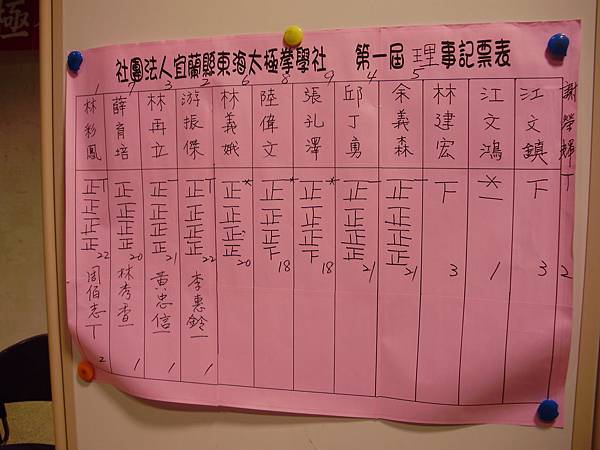 社團法人宜蘭縣東海太極拳學社 第一屆 理事記票表
1 7 3 2 6 8 9 4 5
林彩鳳 薛育培 林再立 游振傑 林義娥 陸偉文 張孔澤 邱丁勇 余義森 林建宏 江文鴻 江文鎮 謝榮輝
正正正正丅 22
正正正正 20
正正正正一 21
正正正正丅 22
正正正正 20
正正正下 18
正正正下 18
正正正正一 21
正正正正一 21
下 3
一 1
下 3
丅 2
周伯志 丅 2
林秀香 一 1
黃忠信 一 1
李惠鈴 一 1